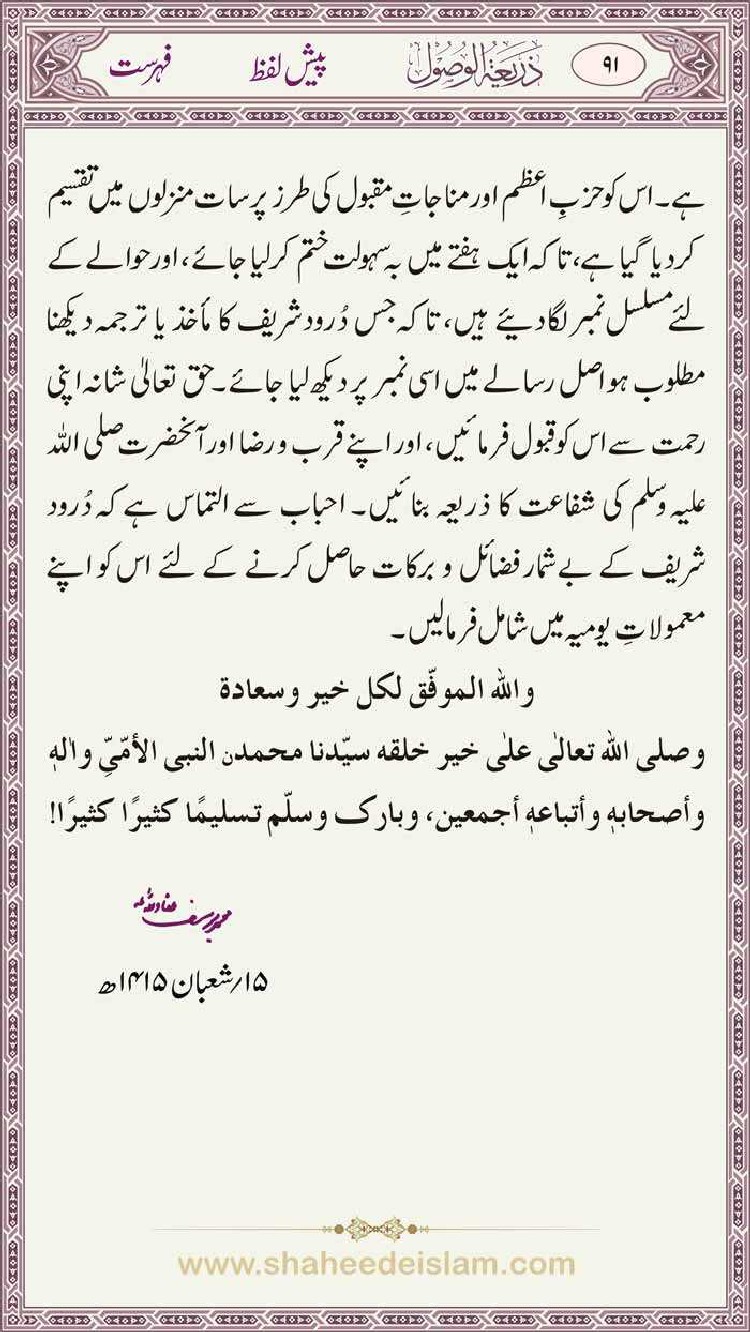 ۹۱ ذَرِیعَۃُ الوُصُول پیش لفظ فہرست
ہے۔ اس کو حزبِ اعظم اور مناجاتِ مقبول کی طرز پر سات منزلوں میں تقسیم
کردیا گیا ہے، تاکہ ایک ہفتے میں بہ سہولت ختم کرلیا جائے، اور حوالے کے
لئے مسلسل نمبر لگادیئے ہیں، تاکہ جس دُرود شریف کا مأخذ یا ترجمہ دیکھنا
مطلوب ہو اصل رسالے میں اسی نمبر پر دیکھ لیا جائے۔ حق تعالیٰ شانہ اپنی
رحمت سے اس کو قبول فرمائیں، اور اپنے قرب و رضا اور آنحضرت صلی اللہ
علیہ وسلم کی شفاعت کا ذریعہ بنائیں۔ احباب سے التماس ہے کہ دُرود
شریف کے بے شمار فضائل و برکات حاصل کرنے کے لئے اس کو اپنے
معمولاتِ یومیہ میں شامل فرمالیں۔
واللہ الموفّق لکل خیر وسعادۃ
وصلی اللہ تعالٰی علٰی خیر خلقہ سیّدنا محمدن النبی الأمّیِّ واٰلہٖ
وأصحابہٖ وأتباعہٖ أجمعین، وبارک وسلّم تسلیمًا کثیرًا کثیرًا!
محمد یوسف عفا اللہ عنہ
۱۵؍شعبان ۱۴۱۵ھ
www.shaheedeislam.com